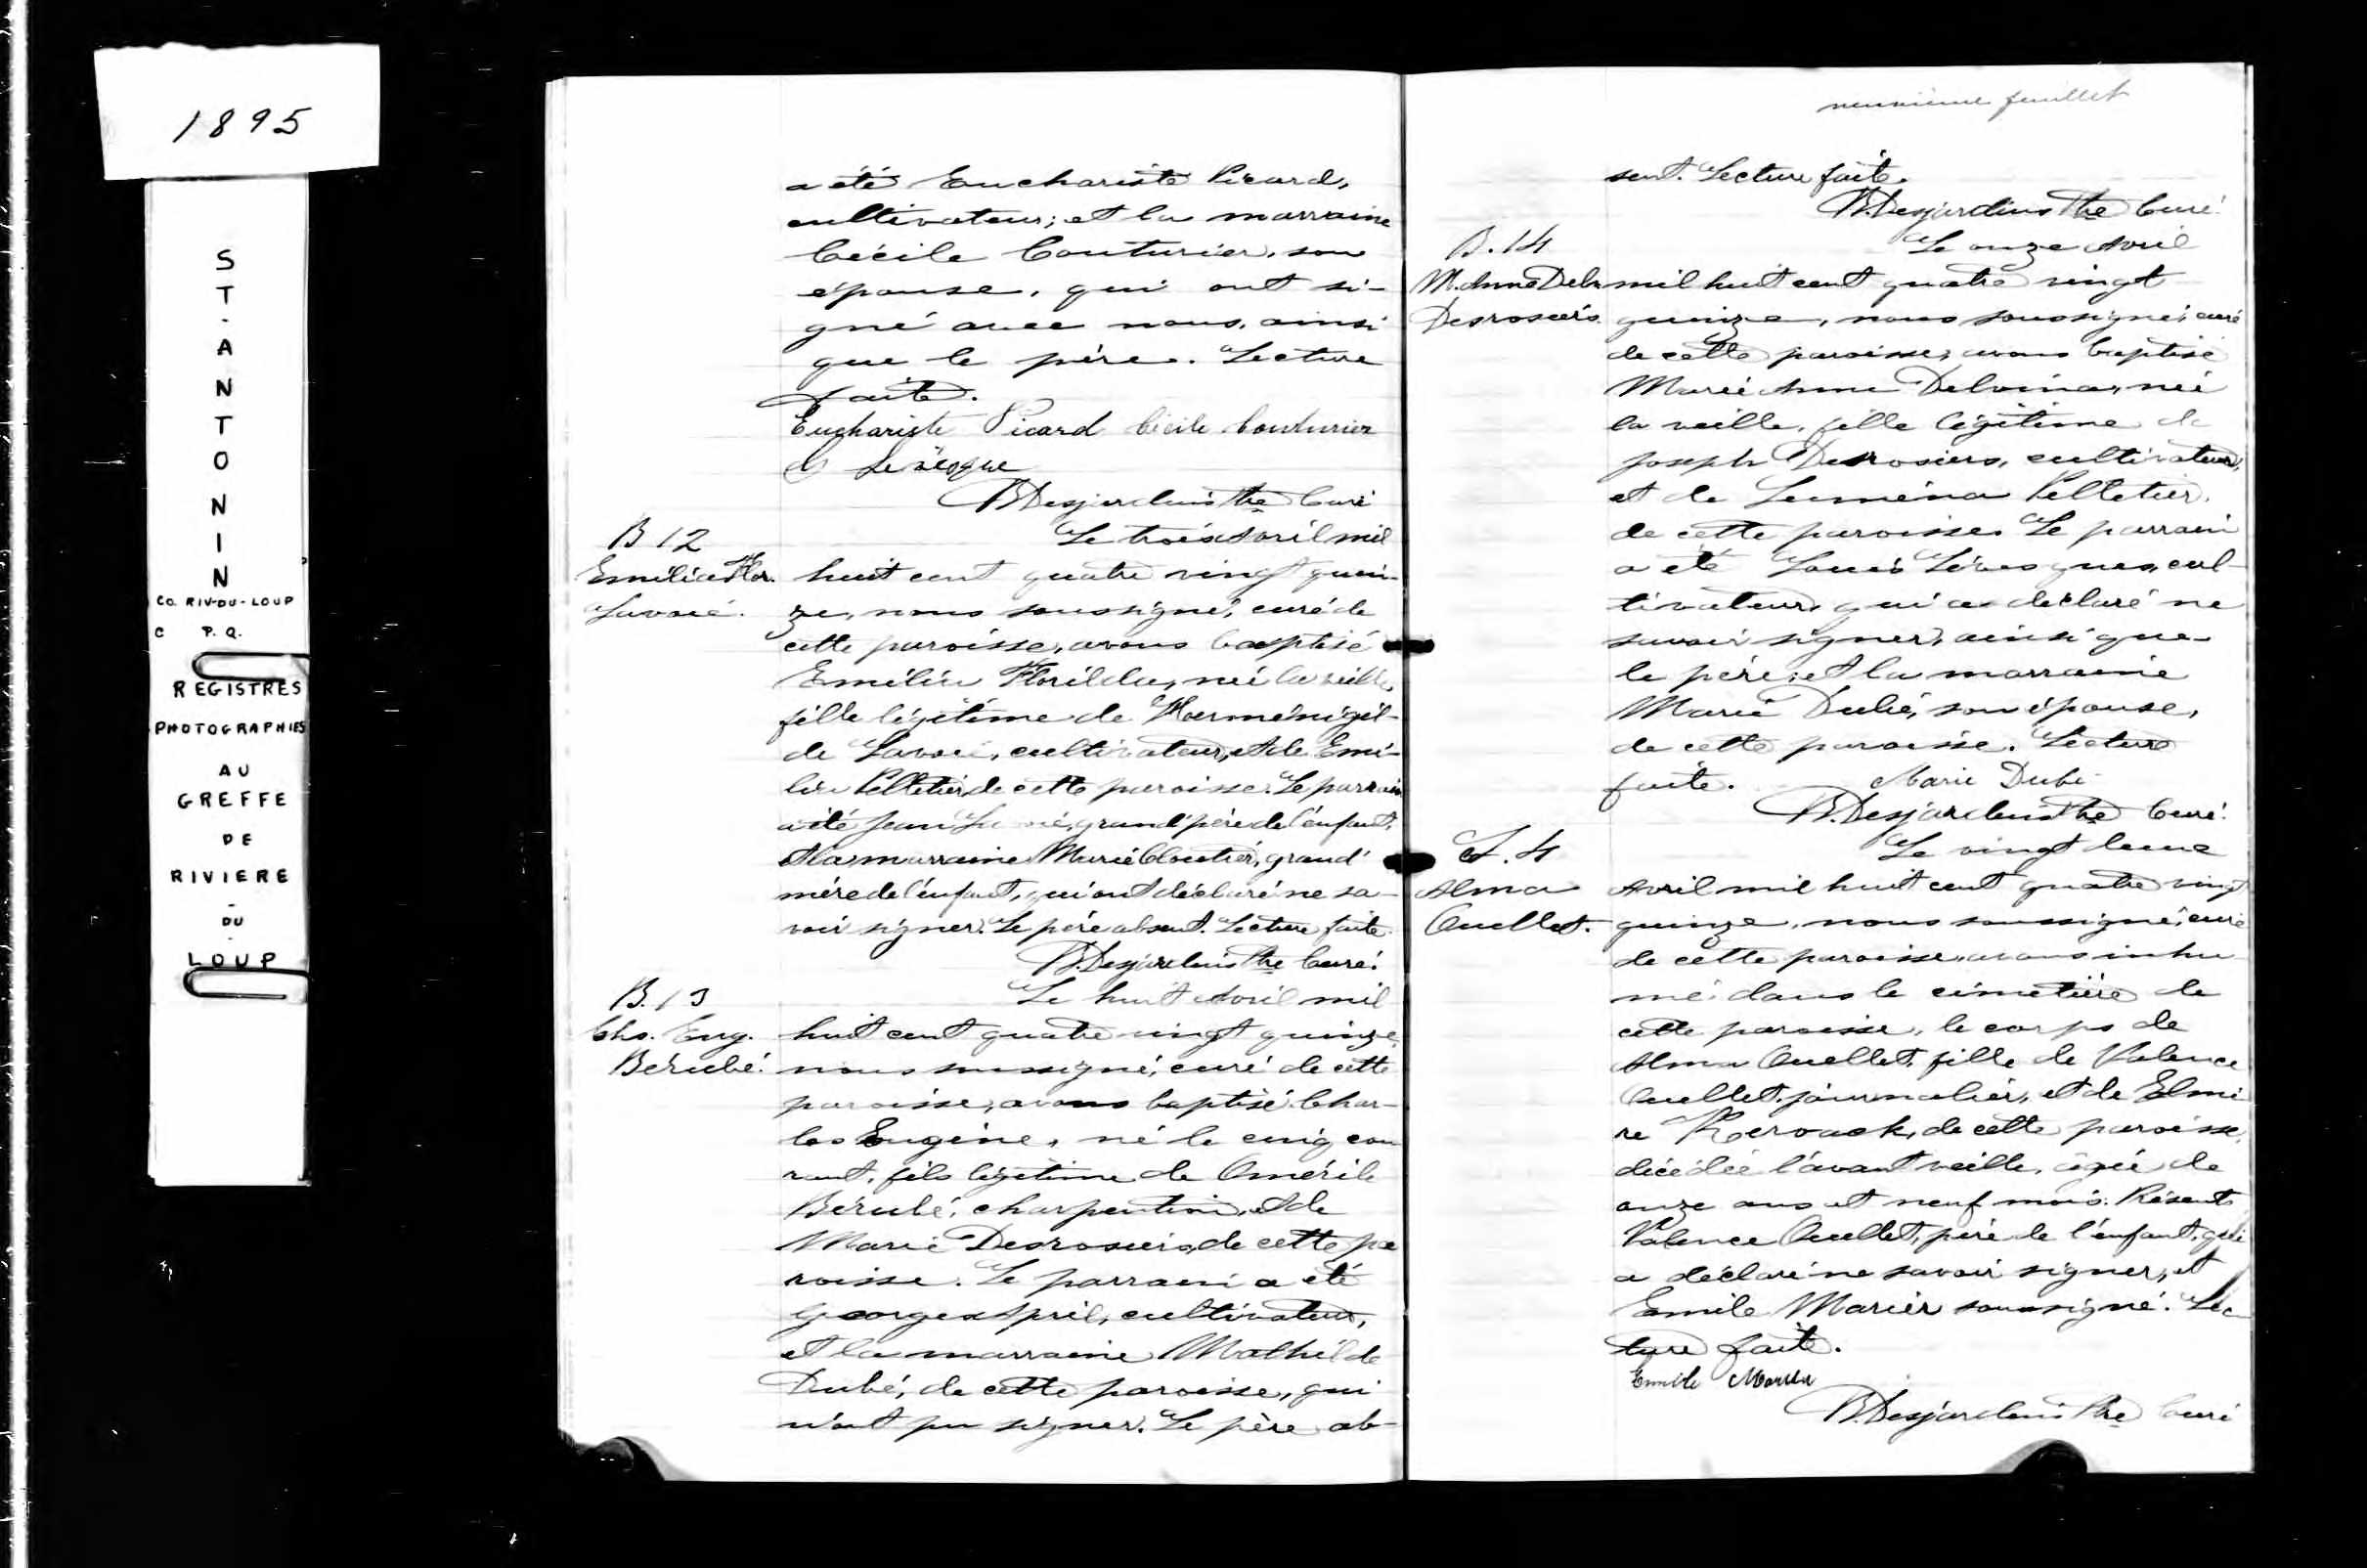 1895
ST-ANTONIN
CO. RIV-DU-LOUP
C P.Q.
REGISTRES
PHOTOGRAPHIES
AU
GREFFE
DE
RIVIERE
-
DU
-
LOUP
a été Euchariste Picard,
cultivateur; et la marraine
Cécile Couturier, son
épouse, qui ont si-
gné avec nous, ainsi
que le père. Lecture
faite.
Euchariste Picard Cécile Couturier
Levêque
B. Desjardins Ptre Curé
B 12
Emilia Flor.
Lavoie.
Le trois Avril mil
huit cent quatre vingt quin-
ze, nous soussigné, curé de
cette paroisse, avons baptisé
Emélia Florilda, née la veille,
fille légitime de Herménégil-
de Lavoie, cultivateur, et de Emé-
lia Pelletier de cette paroisse. Le parrain
a été Jean Lavoie, grand'père de l'enfant,
et la marraine Marie Cloutier, grand'
mère de l'enfant, qui ont déclaré ne sa-
voir signer. Le père absent. Lecture faite.
B. Desjardins Ptre Curé.
B. 13
Chs. Eug.
Bérubé.
Le huit Avril mil
huit cent quatre vingt quinze,
nous soussigné, curé de cette
paroisse, avons baptisé Char-
les Eugène, né le cinq cou
rant, fils légitime de Omérile
Bérubé, charpentier, et de
Marie Desrosiers, de cette pa
roisse. Le parrain a été
George April, cultivateur,
et la marraine Mathilde
Dubé, de cette paroisse, qui
n'ont pu signer. Le père ab-
neuvième feuillet
sent. Lecture faite.
B. Desjardins Ptre Curé.
B. 14
M. Anne Delv.
Desrosiers.
Le onze Avril
mil huit cent quatre vingt
quinze, nous soussigné, curé
de cette paroisse, avons baptisé
Marie Anne Delvina, née
la veille, fille légitime de
Joseph Desrosiers, cultivateur,
et de Luména Pelletier,
de cette paroisse. Le parrain
a été Louis Lévesque, cul-
tivateur, qui a déclaré ne
savoir signer, ainsi que
le père, et la marraine
Marie Dubé, son épouse,
de cette paroisse. Lecture
faite. Marie Dubé
B. Desjardins Ptre Curé.
S. 4
Alma
Ouellet.
Le vingt deux
Avril mil huit cent quatre vingt
quinze, nous soussigné, curé
de cette paroisse, avons inhu
mé, dans le cimetière de
cette paroisse, le corps de
Alma Ouellet, fille de Valence
Ouellet, journalier, et de Elmi
re Kerouack, de cette paroisse,
décédée l'avant veille, âgée de
onze ans et neuf mois. Présents
Valence Ouellet, père de l'enfant, qui
a déclaré ne savoir signer, et
Emile Marier soussigné. Lec
ture faite.
Emile Marier
B. Desjardins Ptre Curé